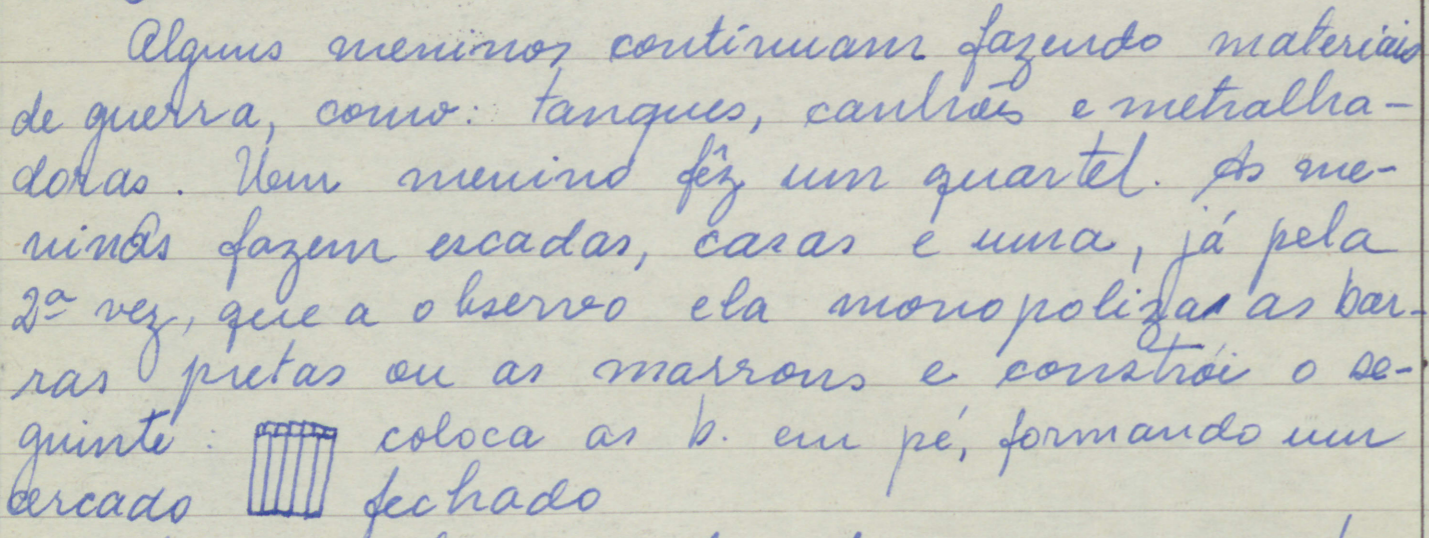 Alguns meninos continuam fazendo materiais
de guerra, como: tanques, canhões e metralha-
doras. Um menino fêz um quartel. As me-
ninas fazem escadas, casas e uma, já pela
2ª vez, que a observo ela monopoliza as bar-
ras pretas ou as marrons e constrói o se-
guinte: coloca as b. em pé, formando um
cercado fechado